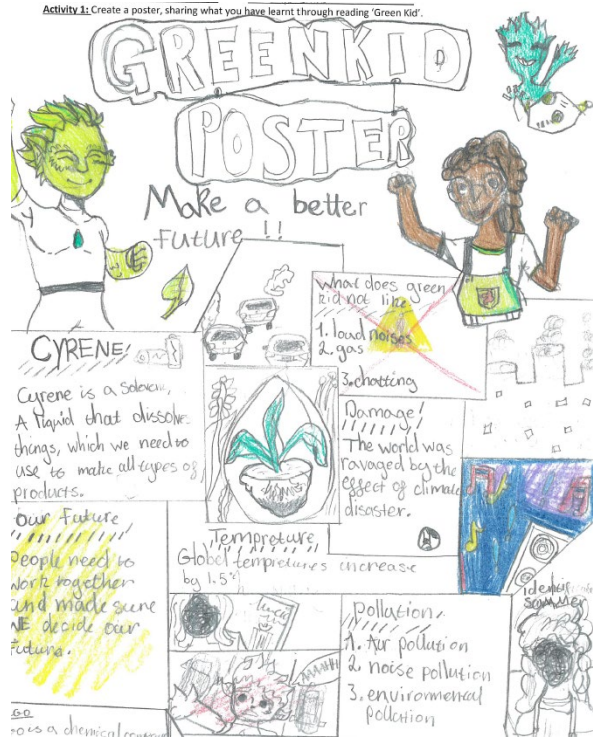 Activity 1: Create a poster, sharing what you have learnt through reading 'Green Kid'.
GREENKID
POSTER
Make a better
future !!
What does green
kid not like
1. loud noises
2. gas
3. chatting
CYRENE!
Cyrene is a
A liquid that dissolves
things, which we need to
use to make all types of
products.
Damage!
The world was
ravaged by the
effect of climate
disaster.
Our Future
People need to
work together
and made sure
WE decide our
future.
Tempreture
Global tempretures increase
by 1.5°
Pollution
1. Air pollution
2. noise pollution
3. environmental
pollution
is a chemical